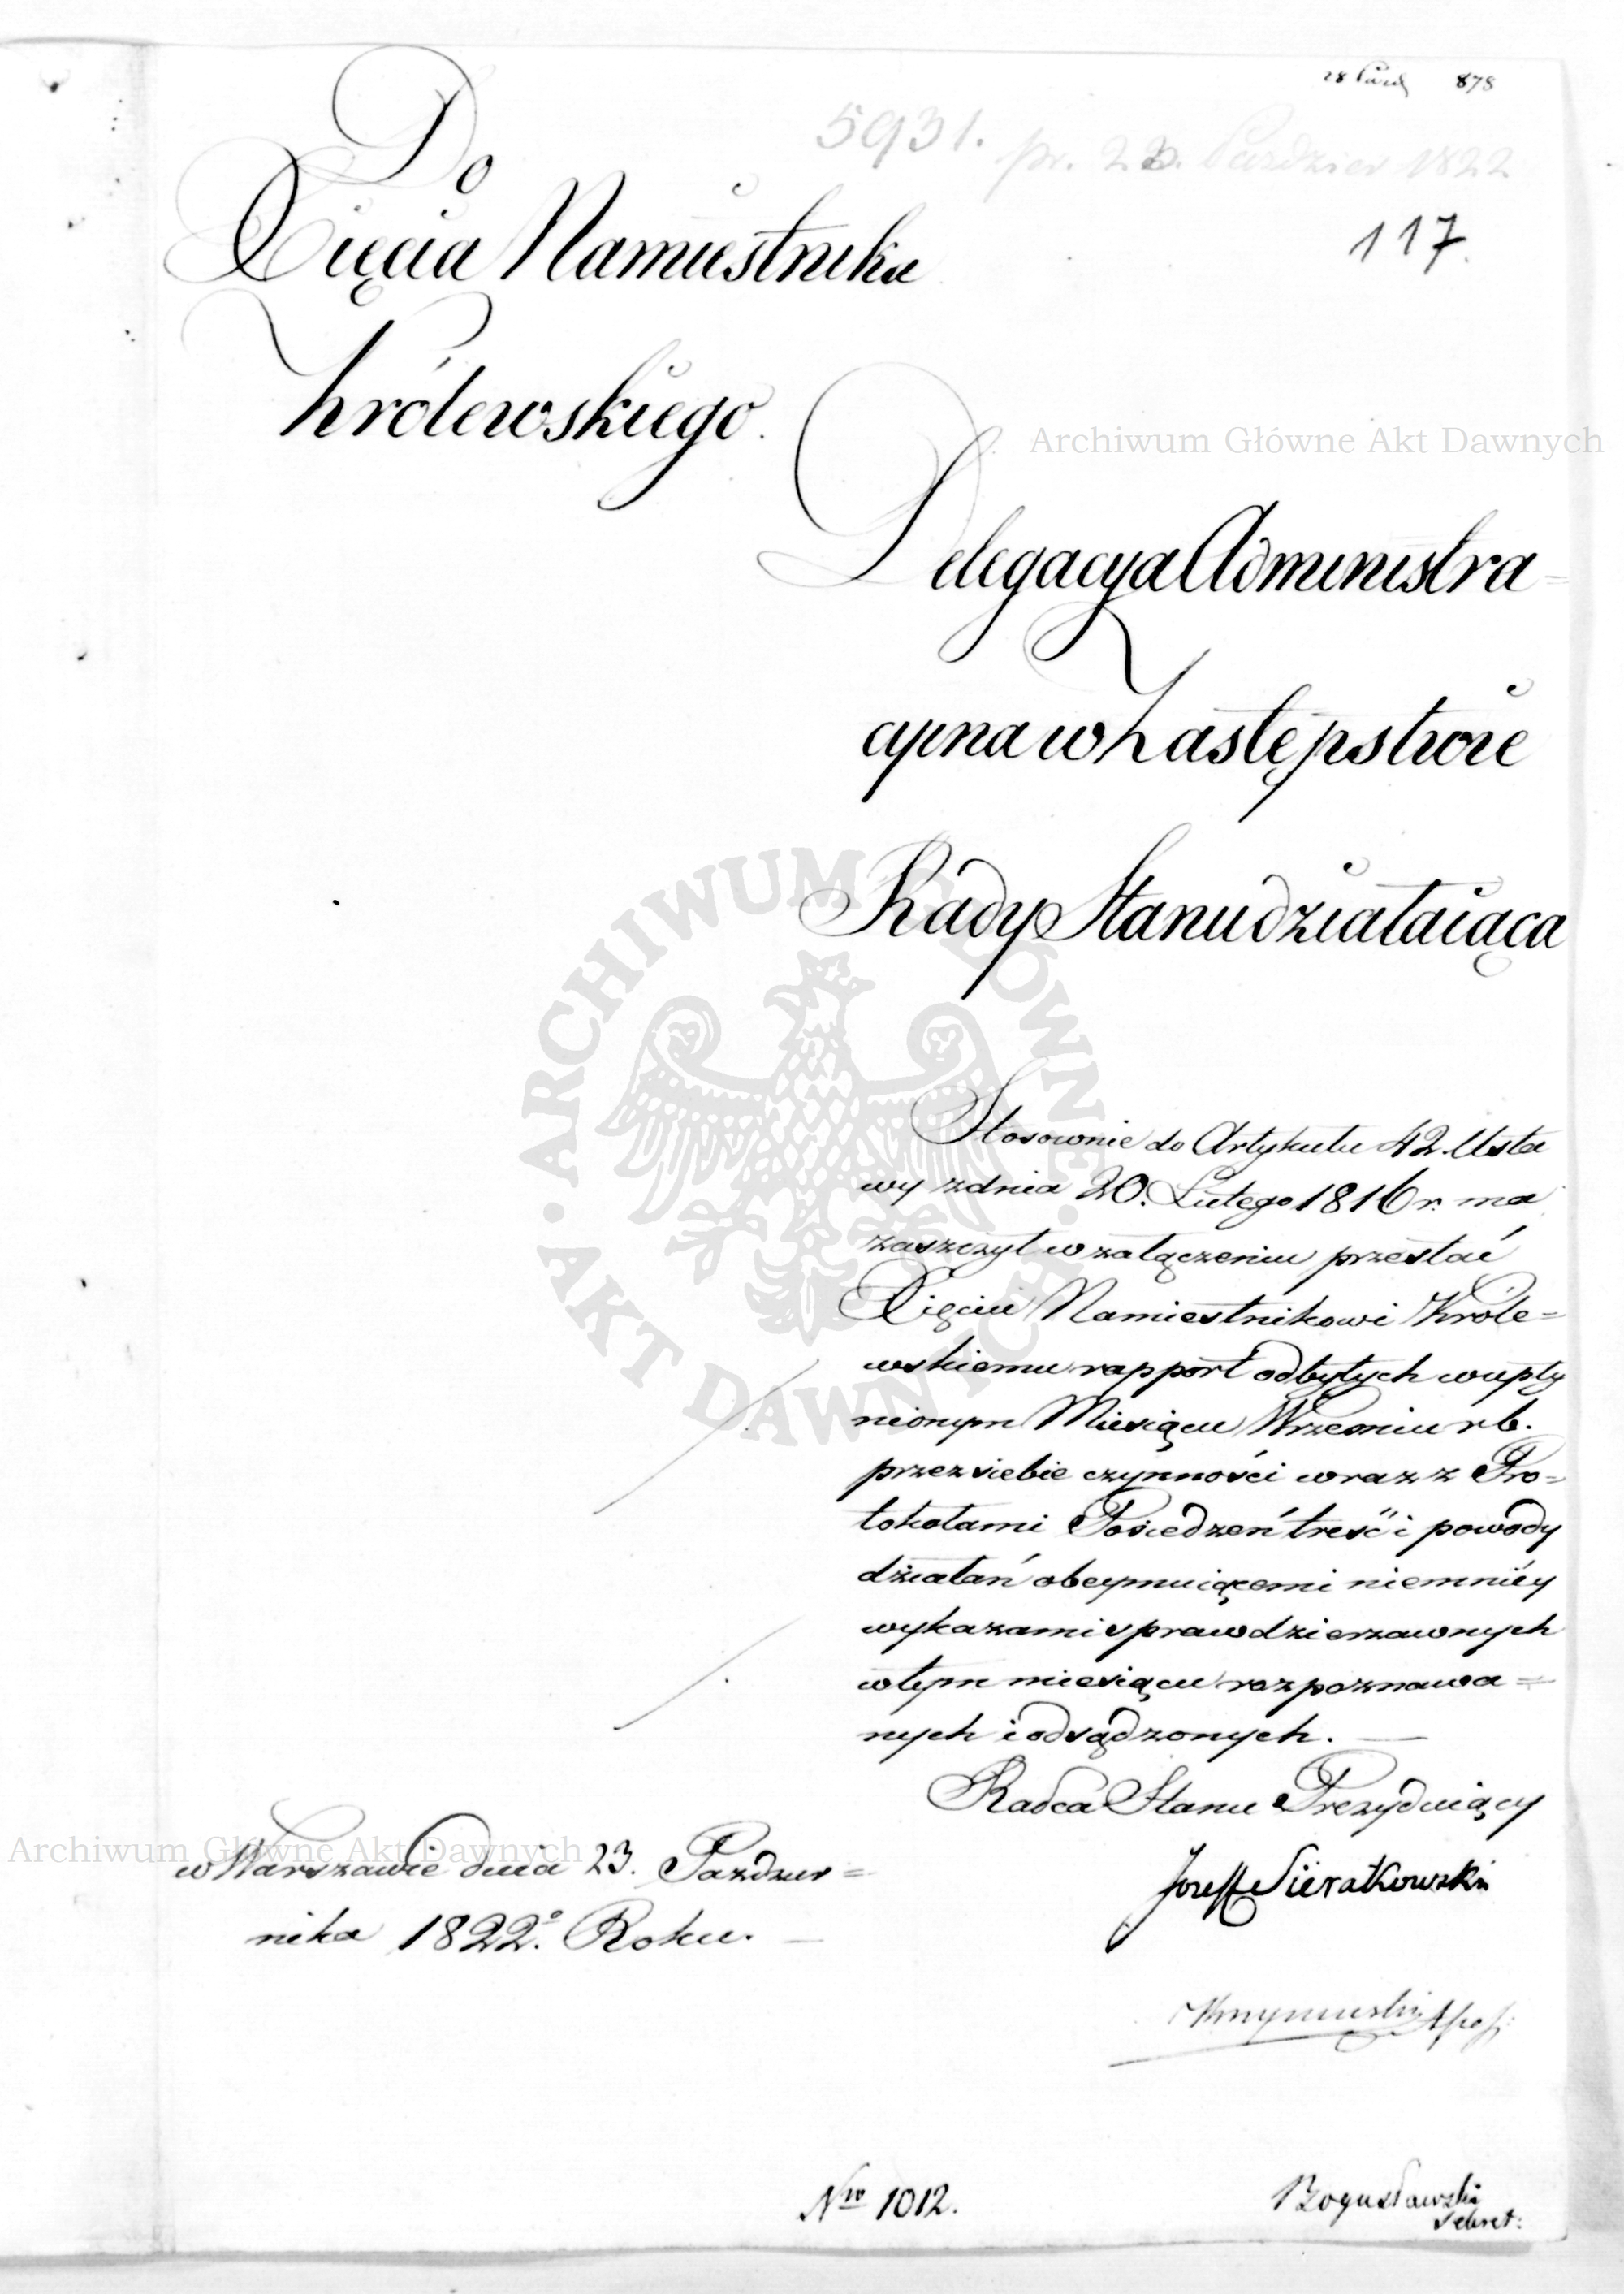 28 Paźd 878
5931. pr. 23. Paździer 1822
117.
Do
Xięcia Namiestnika
Królewskiego.
Archiwum Główne Akt Dawnych
Delegacya Administra-
cyina w Zastępstwie
Rady Stanu działaiąca
ARCHIWUM GŁÓWNE
AKT DAWNYCH
Stosownie do Artykułu 42. Usta
wy z dnia 20. Lutego 1816 r. ma
zaszczyt w załączeniu przesłać
Xięciu Namiestnikowi Króle=
wskiemu rapport odbytych w upły
nionym Miesiącu Wrześniu r.b.
przez siebie czynności wraz z Pro=
tokołami Posiedzeń treść i powody
działań obeymuiącemi niemniéy
wykazami spraw dzierzawnych
w tym miesiącu rozpoznawa=
nych i odsądzonych. —
Radca Stanu Prezyduiący
Jozeff Sierakowski
w Warszawie dnia 23. Paździer=
nika 1822º. Roku. —
Archiwum Główne Akt Dawnych
Nro 1012.
Bogusławski
Sekret: